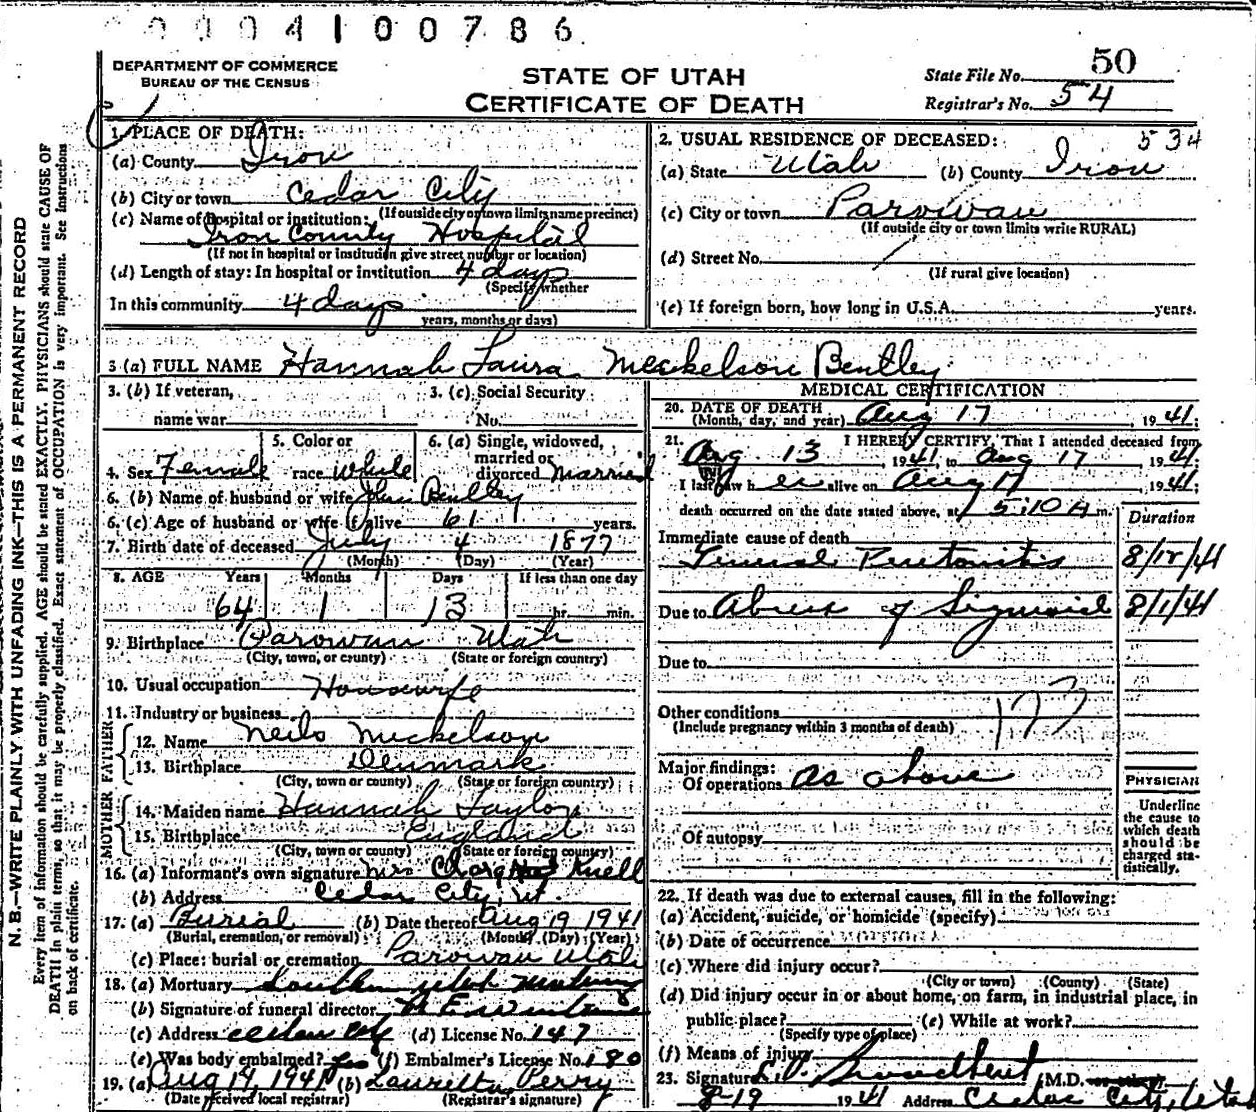 0004100786
DEPARTMENT OF COMMERCE
BUREAU OF THE CENSUS
STATE OF UTAH
CERTIFICATE OF DEATH
State File No. 50
Registrar's No. 54
1. PLACE OF DEATH:
(a) County Iron
(b) City or town Cedar City
(If outside city or town limits name precinct)
(c) Name of hospital or institution:
Iron County Hospital
(If not in hospital or institution give street number or location)
(d) Length of stay: In hospital or institution 4 days
(Specify whether
In this community 4 days
years, months or days)
2. USUAL RESIDENCE OF DECEASED: 534
(a) State Utah (b) County Iron
(c) City or town Parowan
(If outside city or town limits write RURAL)
(d) Street No.
(If rural give location)
(e) If foreign born, how long in U.S.A. years.
3 (a) FULL NAME Hannah Laura Meckelson Bentley
3. (b) If veteran, 3. (c) Social Security
name war No.
4. Sex Female 5. Color or race White 6. (a) Single, widowed, married or divorced Married
6. (b) Name of husband or wife John Bentley
6. (c) Age of husband or wife if alive 61 years.
7. Birth date of deceased July 4 1877
(Month) (Day) (Year)
8. AGE Years Months Days If less than one day
64 1 13 hr. min.
9. Birthplace Parowan Utah
(City, town, or county) (State or foreign country)
10. Usual occupation Housewife
11. Industry or business
FATHER
12. Name Neils Mickelson
13. Birthplace Denmark
(City, town or county) (State or foreign country)
MOTHER
14. Maiden name Hannah Taylor
15. Birthplace England
(City, town or county) (State or foreign country)
16. (a) Informant's own signature Mrs Knell
(b) Address Cedar City, Ut.
17. (a) Burial (b) Date thereof Aug 19 1941
(Burial, cremation, or removal) (Month) (Day) (Year)
(c) Place: burial or cremation Parowan Utah
18. (a) Mortuary Southern Utah Mortuary
(b) Signature of funeral director
(c) Address Cedar City (d) License No. 147
(e) Was body embalmed? Yes (f) Embalmer's License No. 180
19. (a) Aug 19, 1941 (b) Lauretta Perry
(Date received local registrar) (Registrar's signature)
MEDICAL CERTIFICATION
20. DATE OF DEATH
(Month, day, and year) Aug 17, 1941;
21. I HEREBY CERTIFY, That I attended deceased from
Aug. 13, 1941, to Aug 17, 1941
I last saw her alive on Aug 17, 1941;
death occurred on the date stated above, at 5:10 A m.
Duration
Immediate cause of death
General Peritonitis
Due to Abscess of Sigmoid 8/1/41
Due to
Other conditions
(Include pregnancy within 3 months of death)
Major findings:
Of operations as above
Of autopsy
PHYSICIAN
Underline
the cause to
which death
should be
charged sta-
tistically.
22. If death was due to external causes, fill in the following:
(a) Accident, suicide, or homicide (specify)
(b) Date of occurrence
(c) Where did injury occur?
(City or town) (County) (State)
(d) Did injury occur in or about home, on farm, in industrial place, in
public place? (e) While at work?
(Specify type of place)
(f) Means of injury
23. Signature M.D.
8-19 1941 Address Cedar City, Utah
N. B.—WRITE PLAINLY WITH UNFADING INK—THIS IS A PERMANENT RECORD
Every item of information should be carefully supplied. AGE should be stated EXACTLY. PHYSICIANS should state CAUSE OF
DEATH in plain terms, so that it may be properly classified. Exact statement of OCCUPATION is very important. See instructions
on back of certificate.